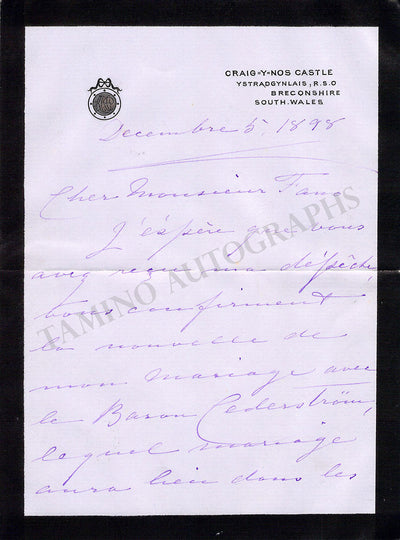 CRAIG-Y-NOS CASTLE
YSTRADGYNLAIS, R.S.O
BRECONSHIRE
SOUTH.WALES
Decembre 5, 1898
Cher Monsieur
J'éspère que vous
avez reçu ma dépêche,
vous confirment
la nouvelle de
mon mariage avec
le Baron Cederström,
lequel mariage
aura lieu dans les
TAMINO AUTOGRAPHS